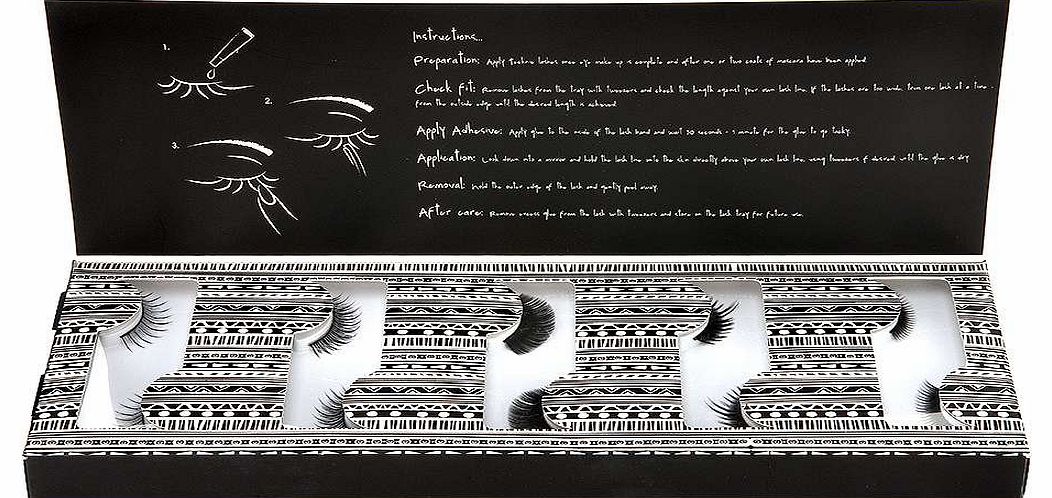 1.
2.
3.
Instructions...
Preparation: Apply lashes once eye make up is complete and after one or two coats of mascara have been applied
Check fit: Remove lashes from the tray with tweezers and check the length against your own lash line. If the lashes are too wide trim one lash at a time -
from the outside edge until the desired length is achieved
Apply Adhesive: Apply glue to the inside of the lash band and wait 30 seconds - 1 minute for the glue to go tacky.
Application: Look down into a mirror and hold the lash line onto the skin directly above your own lash line using tweezers if desired until the glue is dry
Removal: Hold the outer edge of the lash and gently peel away.
After care: Remove excess glue from the lash with tweezers and store on the lash tray for future use.